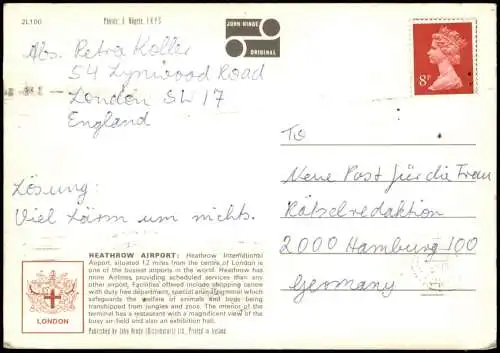 2L100
Photo: E. Nägele, F.R.P.S.
JOHN HINDE
ORIGINAL
8P
Abs. Petra Koller
54 Lynwood Road
London SW 17
England
To
Neue Post für die Frau
Rätselredaktion
2000 Hamburg 100
Germany
Lösung:
Viel Lärm um nichts.
HEATHROW AIRPORT: Heathrow International
Airport, situated 12 miles from the centre of London is
one of the busiest airports in the world. Heathrow has
more Airlines, providing scheduled services than any
other airport. Facilities offered include shopping centre
with duty free department, special animal terminal which
safeguards the welfare of animals and birds being
transhipped from jungles and zoos. The interior of the
terminal has a restaurant with a magnificent view of the
busy air-field and also an exhibition hall.
Published by John Hinde (Distributors) Ltd., Printed in Ireland
LONDON